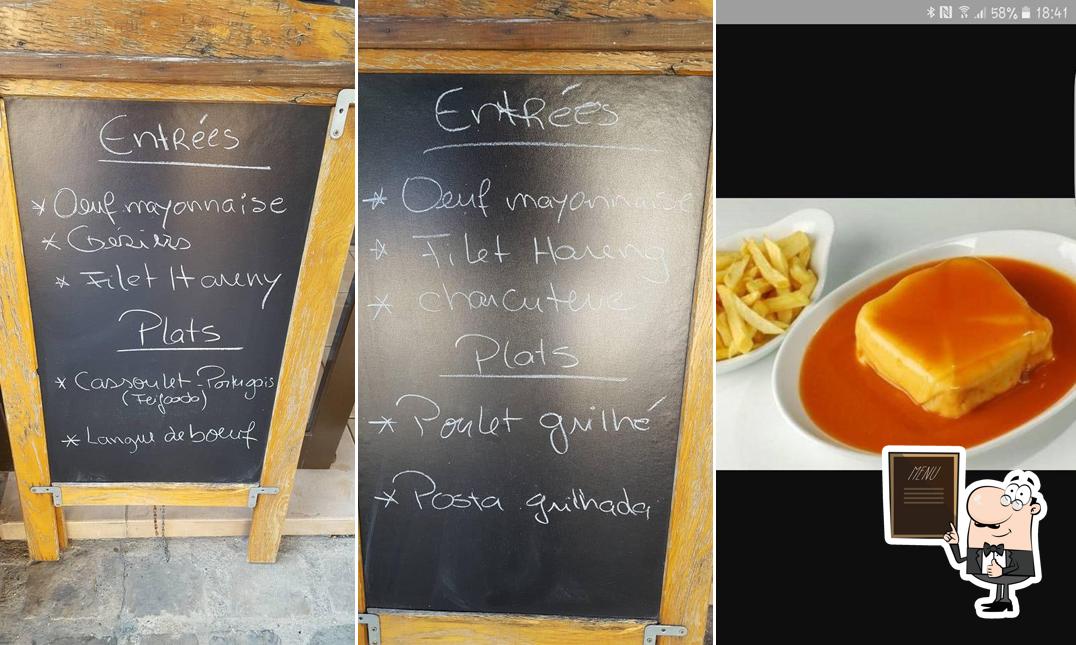 Entrées
* Oeuf mayonnaise
* Gésiers
* Filet Hareng
Plats
* Cassoulet - Portugais
(Feijoada)
* Langue de boeuf
Entrées
* Oeuf mayonnaise
* Filet Hareng
* charcuterie
Plats
* Poulet grilhé
* Posta grilhada
58% 18:41
MENU